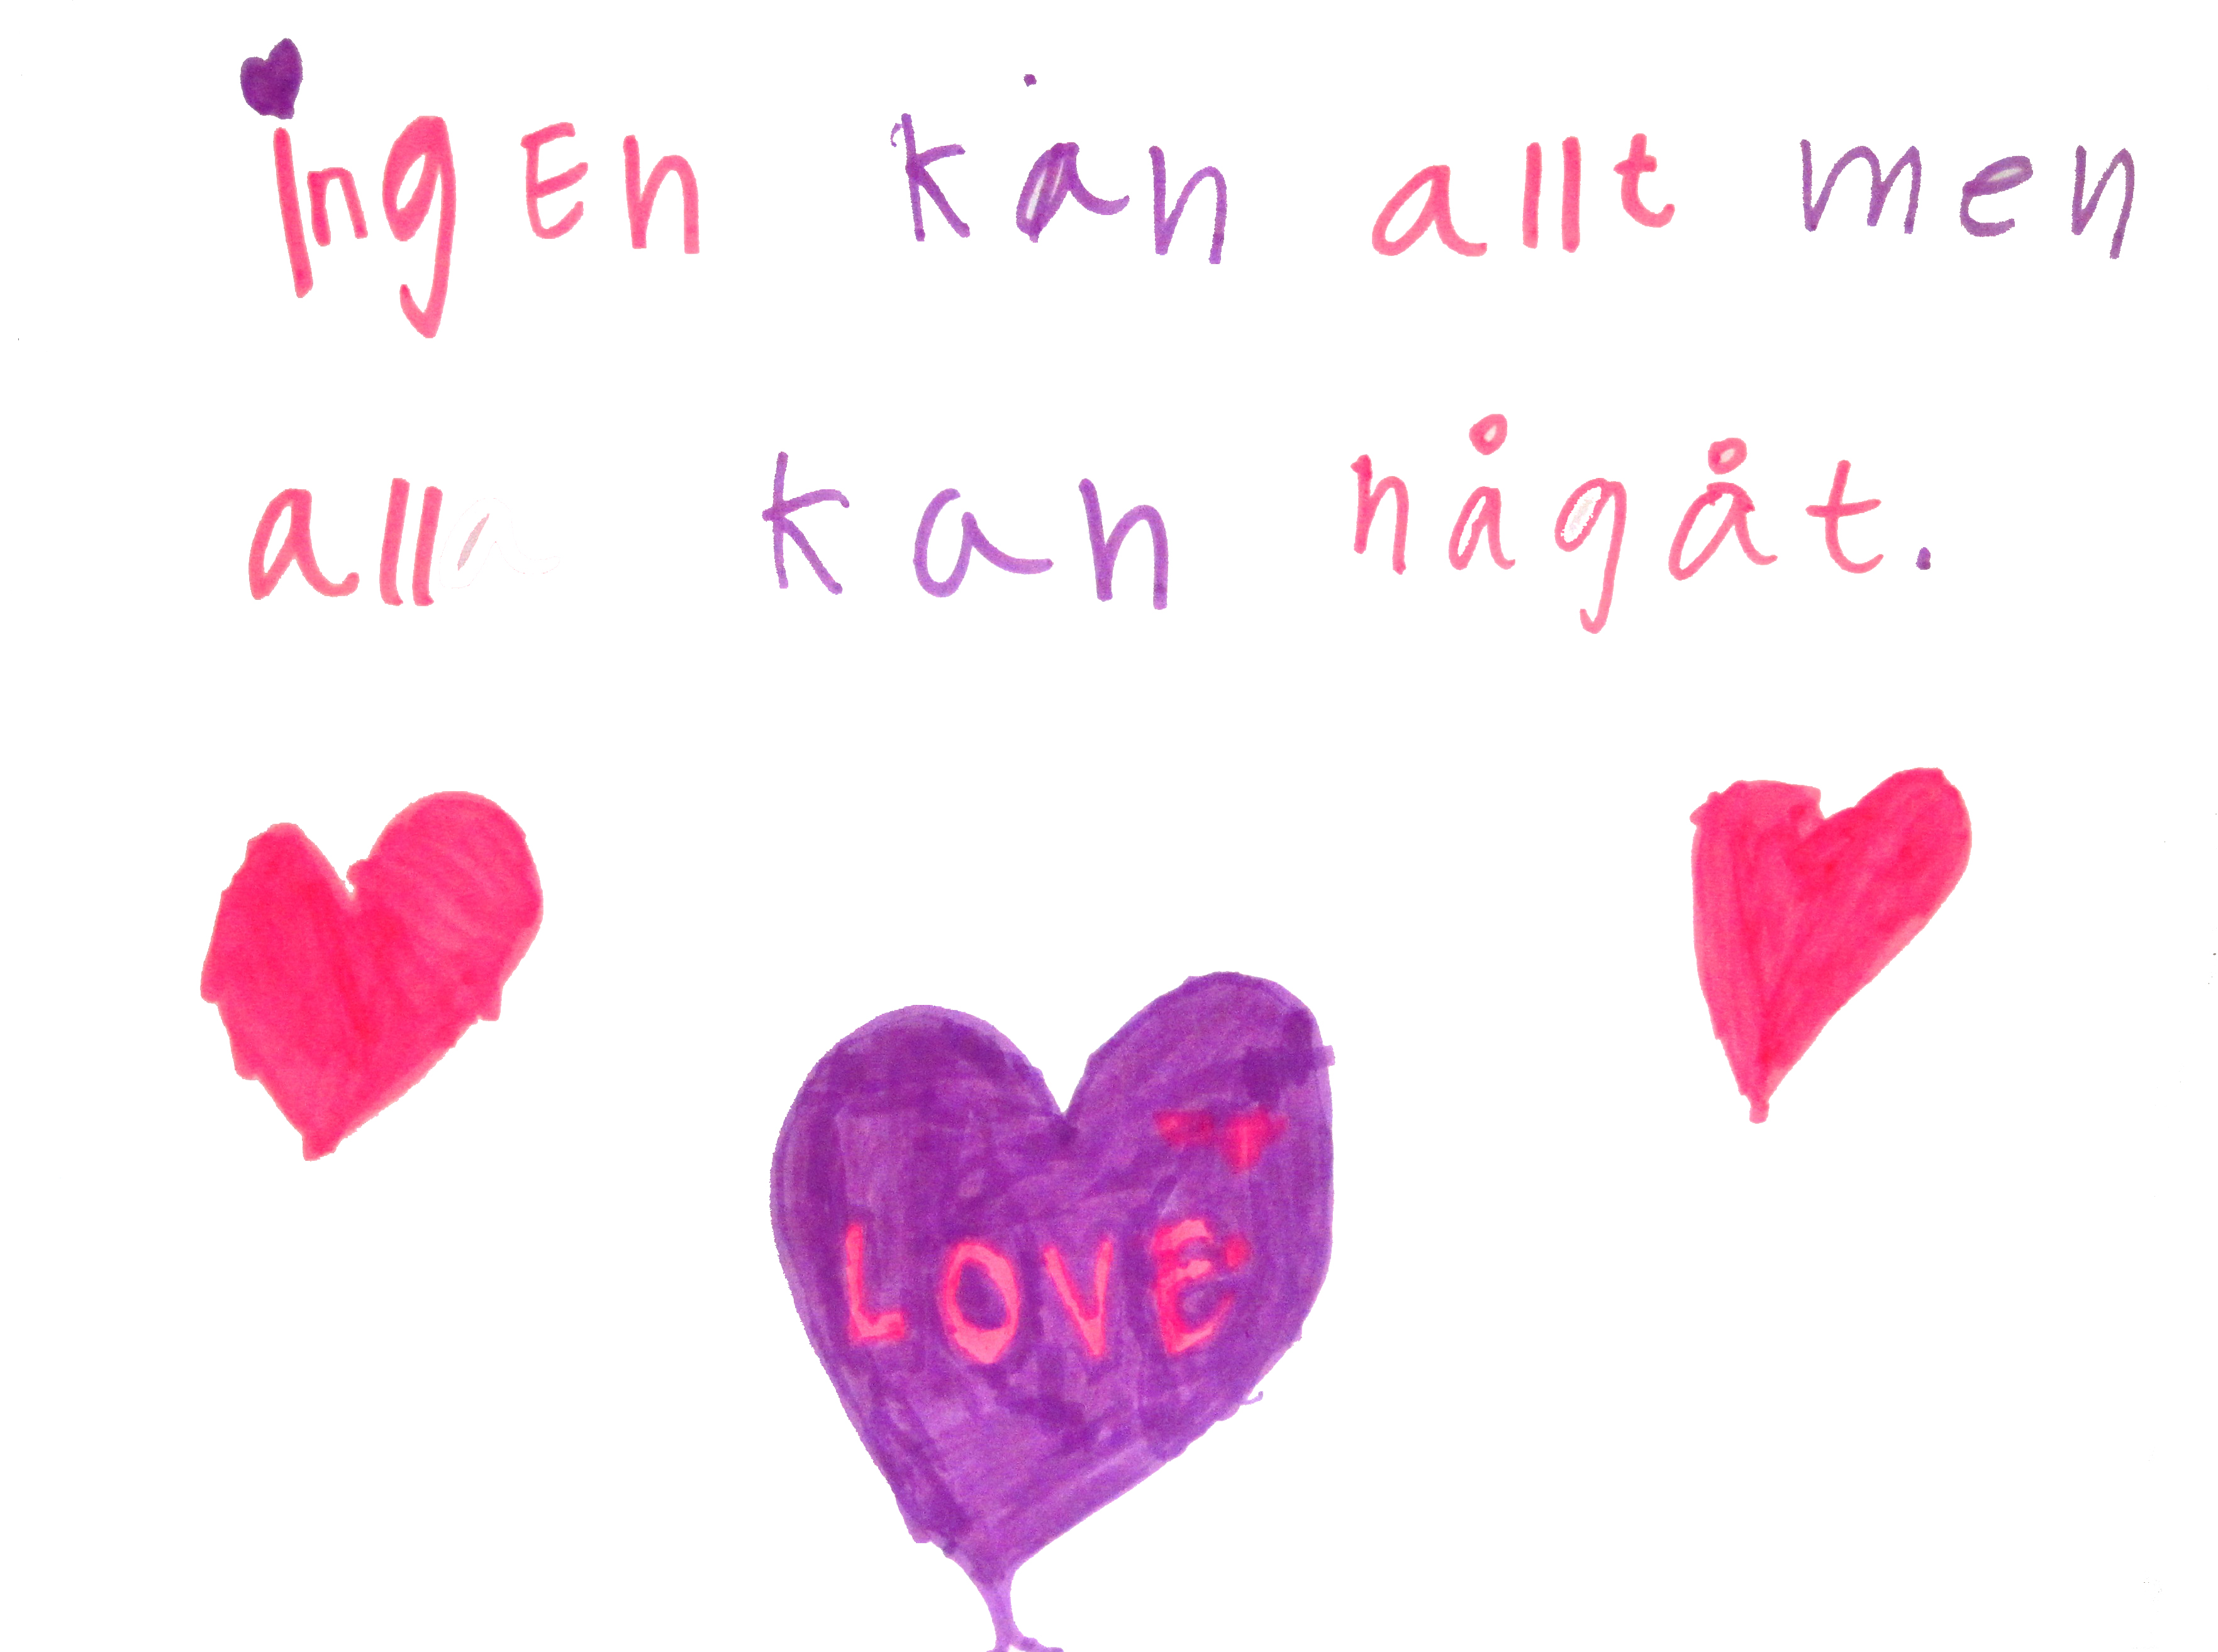 ingEn kan allt men
alla kan någåt.
LOVE